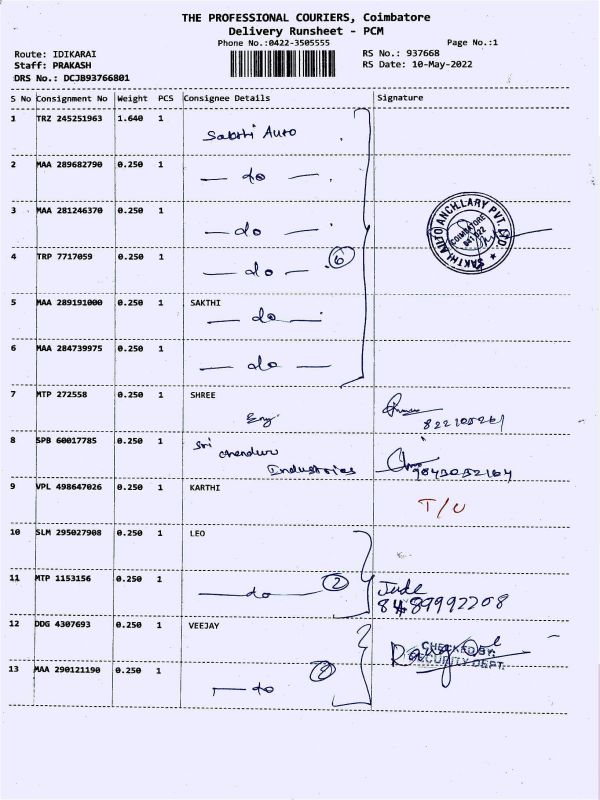 THE PROFESSIONAL COURIERS, Coimbatore
Delivery Runsheet - PCM
Phone No.:0422-3505555 Page No.:1
Route: IDIKARAI RS No.: 937668
Staff: PRAKASH RS Date: 10-May-2022
DRS No.: DCJB93766801
S No Consignment No Weight PCS Consignee Details Signature
1 TRZ 245251963 1.640 1
Sakthi Auto
2 MAA 289682790 0.250 1
— do —
3 MAA 281246370 0.250 1
— do —
SAKTHI AUTO ANCILLARY PVT. LTD.
COIMBATORE
641 022
4 TRP 7717059 0.250 1
— do — 6
5 MAA 289191000 0.250 1 SAKTHI
— do —
6 MAA 284739975 0.250 1
— do —
7 MTP 272558 0.250 1 SHREE
Eng.
8 SPB 60017785 0.250 1 Sri
Industries
9 VPL 498647026 0.250 1 KARTHI
T/U
10 SLM 295027908 0.250 1 LEO
11 MTP 1153156 0.250 1
— do — 2 Jude
12 DDG 4307693 0.250 1 VEEJAY
CHECKED BY
SECURITY DEPT.
13 MAA 290121190 0.250 1
— do